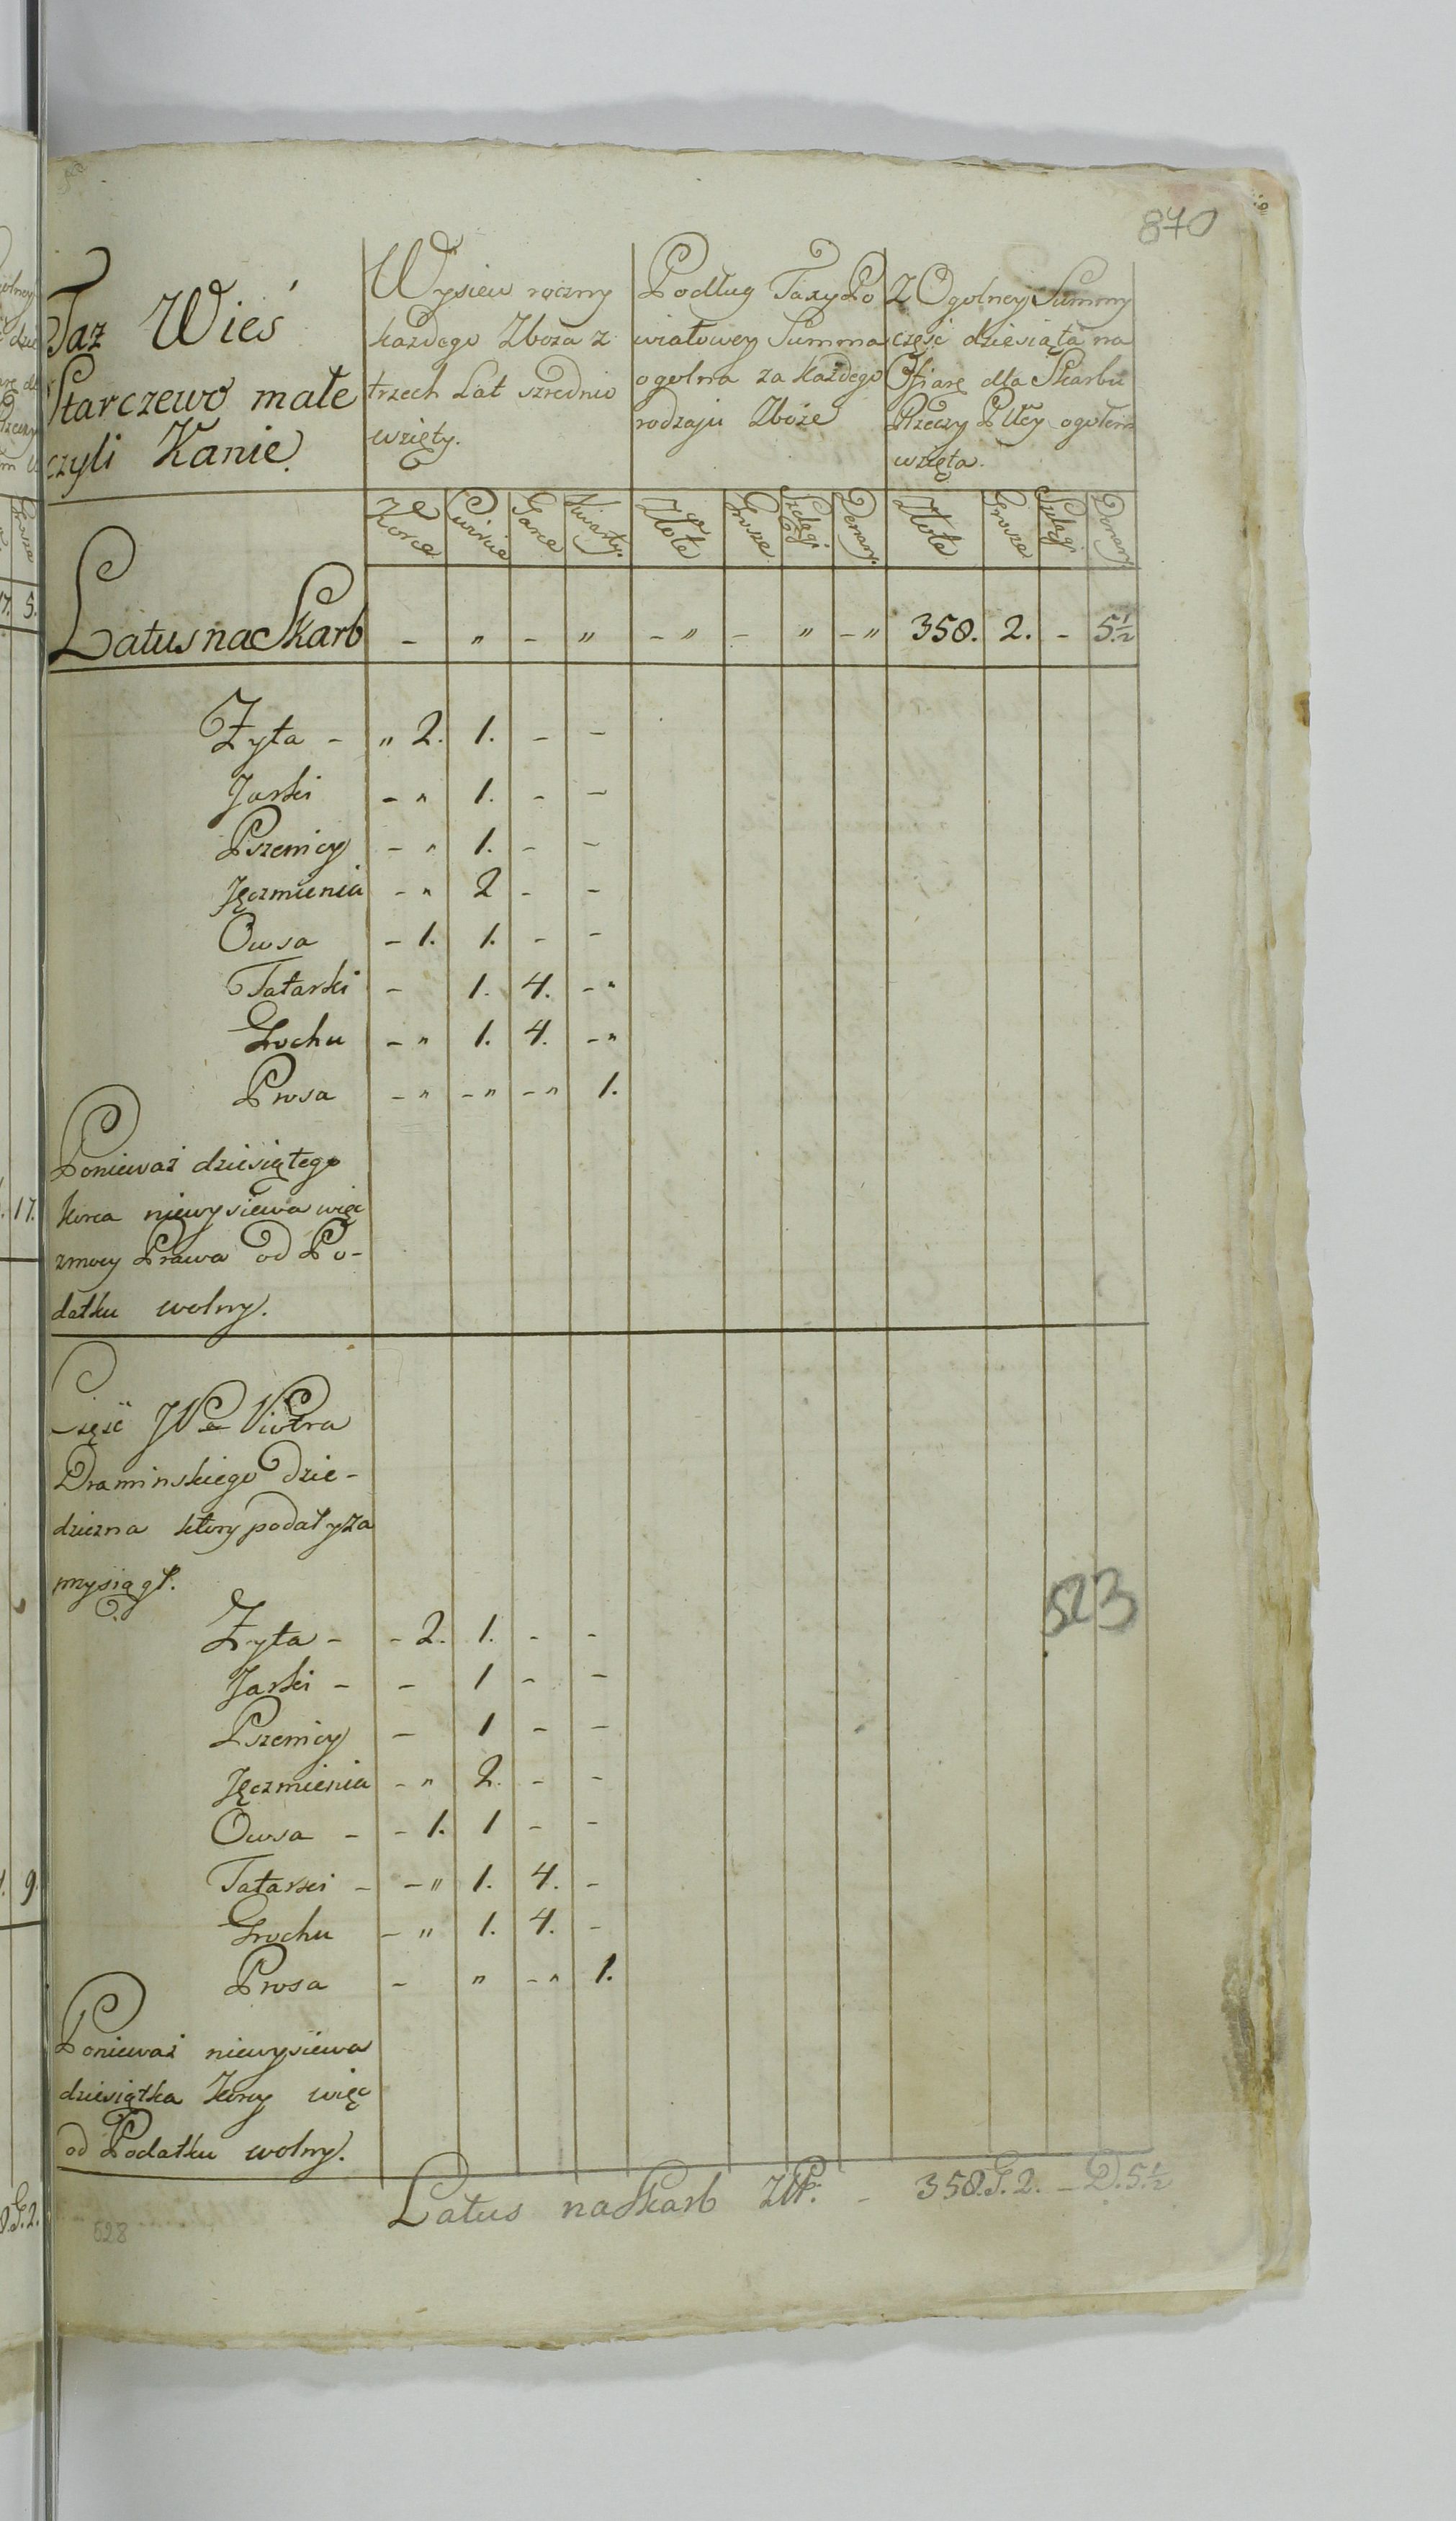 870
Taz Wieś
Starczewo małe
czyli Kanie.
Wysiew roczny
każdego Zboża z
trzech Lat szrednio
wzięty.
Podług Taxy Po
wiatowey Summa
ogolna za każdego
rodzaju Zboże
Z Ogolney Summy
część dziesiąta na
Ofiarę dla Skarbu
Rzeczy Pltey ogołem
wzięta.
Korce Cwircie Garce Kwarty. Złote Grosze Szelągi Denary. Złote Grosze Szelągi Denary
Latus na Skarb - " - " - " - " - " 358. 2. - 5 1/2
Zyta - " 2. 1. - -
Jarki - " 1. - -
Pszenicy - " 1. - -
Jęczmienia - " 2 - -
Owsa - 1. 1. - -
Tatarki - 1. 4. - "
Grochu - " 1. 4. - "
Prosa - " - " - " 1.
Ponieważ dziesiątego
korca niewysiewa więc
zmocy Prawa od Po-
datku wolny.
Część JP Piotra
Draminskiego Dzie-
dzicza ktory podał y za
przysiągł.
523
Zyta - - 2. 1. - -
Jarki - - 1 - -
Pszenicy - 1 - -
Jęczmienia - " 2. - -
Owsa - - 1. 1 - -
Tatarki - - " 1. 4. -
Grochu - " 1. 4. -
Prosa - " - " 1.
Ponieważ niewysiewa
dziesiątka korcy więc
od Podatku wolny.
Latus na Skarb ZłP. - 358. G. 2. - D. 5 1/2
628